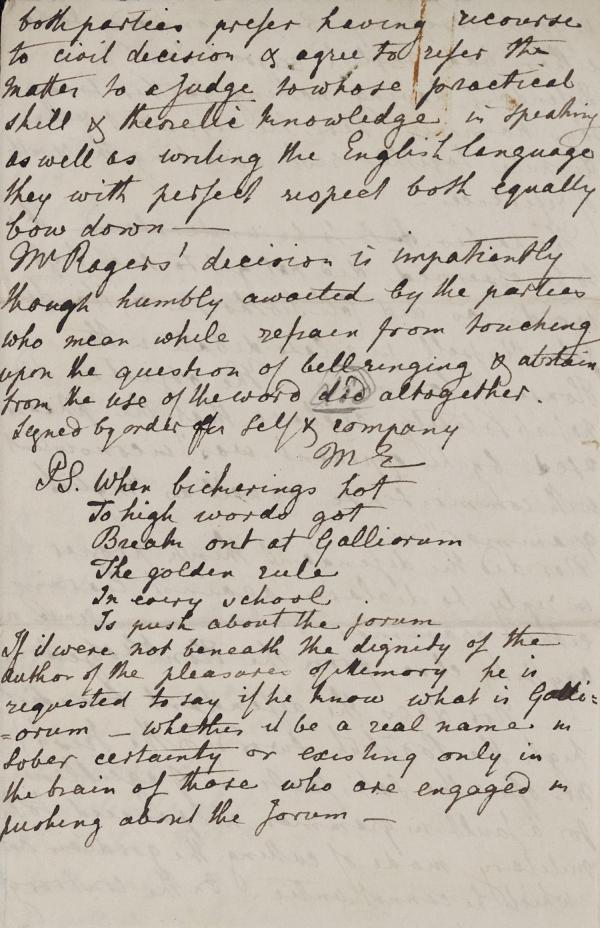 both parties prefer having recourse
to civil decision & agree to refer the
matter to a Judge to whose practical
skill & theoretic knowledge in speaking
as well as writing the English language
they with perfect respect both equally
bow down —
Mr Rogers' decision is impatiently
though humbly awaited by the parties
who mean while refrain from touching
upon the question of bell ringing & abstain
from the use of the word did altogether.
Signed by order of self & company
M E
PS. When bickerings hot
To high words got
Break out at Galliorum
The golden rule
In every school
Is push about the jorum
If it were not beneath the dignity of the
author of the pleasures of Memory he is
requested to say if he know what is Galli=
=orum — whether it be a real name in
sober certainty or existing only in
the brain of those who are engaged in
pushing about the Jorum —